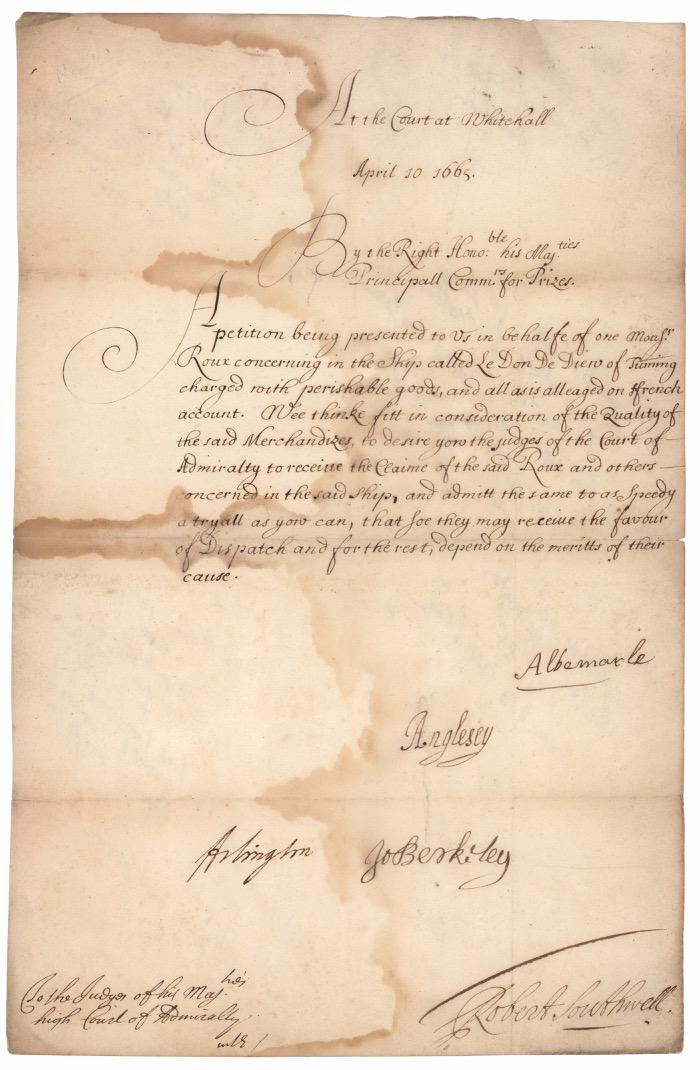 At the Court at Whitehall
April 10 1665.
By the Right Hono:ble his Maj:ties
Principall Commrs. for Prizes.
A petition being presented to Us in behalfe of one Monsr.
Roux concerning in the Ship called Le Don De Diew of
charged with perishable goods, and all as is alleaged on ffrench
account. Wee thinke fitt in consideration of the Quality of
the said Merchandizes, to desire yow the judges of the Court of
Admiralty to receive the Claime of the said Roux and others
concerned in the said Ship, and admitt the same to as Speedy
a tryall as yow can, that soe they may receive the favour
of Dispatch and for the rest, depend on the meritts of their
cause.
Albemarle
Anglesey
Arlington JoBerkeley
To the Judges of his Maj:ties
high Court of Admiralty
Robert Southwell.